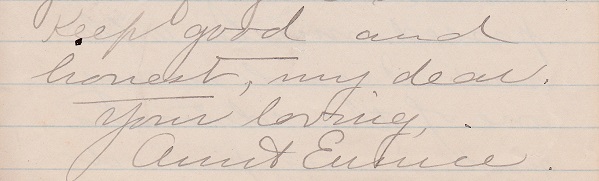 Keep good and
honest, my dear.
Your loving,
Aunt Eunice.